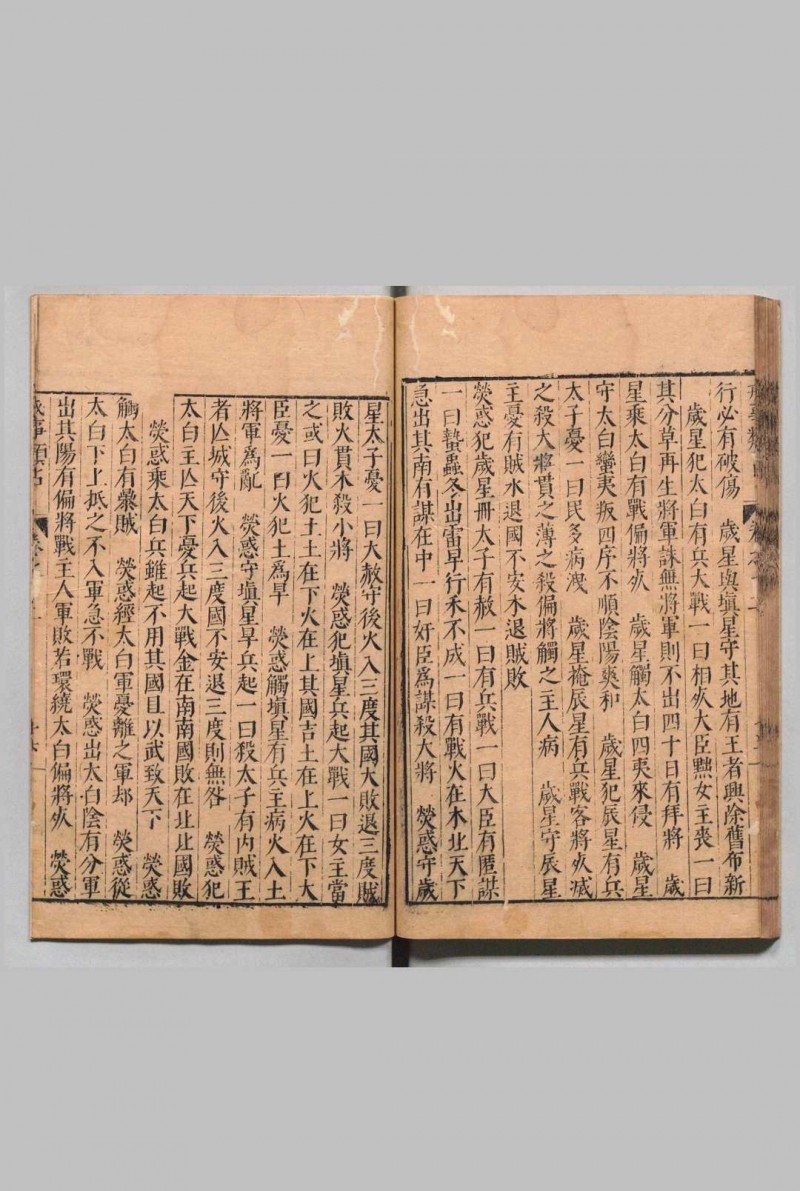 行必有破傷　歲星與塡星守其地有王者興除舊布新
歲星犯太白有兵大戰一曰相疾大臣黜女主喪一曰
其分草再生將軍誅無將軍則不出四十日有拜將　歲
星乘太白有戰偏將疾　歲星觸太白四夷來侵　歲星
守太白蠻夷叛四序不順陰陽爽和　歲星犯辰星有兵
太子憂一曰民多病洩　歲星掩辰星有兵戰客將疾滅
之殺大將貫之薄之殺偏將觸之主人病　歲星守辰星
主憂有賊水退國不安木退賊敗
熒惑犯歲星冊太子有赦一曰有兵戰一曰大臣有匿謀
一曰蟄蟲冬出雷早行禾不成一曰有戰火在木北天下
急出其南有謀在中一曰奸臣爲謀殺大將　熒惑守歲
星太子憂一曰大赦守後火入三度其國大敗退三度賊
敗火貫木殺小將　熒惑犯塡星兵起大戰一曰女主當
之或曰火犯土土在下火在上其國吉土在上火在下大
臣憂一曰火犯土爲旱　熒惑觸塡星有兵主病火入土
將軍爲亂　熒惑守塡星旱兵起一曰殺太子有內賊王
者亾城守後火入三度國不安退三度則無咎　熒惑犯
太白王亾天下憂兵起大戰金在南南國敗在北北國敗
熒惑乘太白兵雖起不用其國且以武致天下　熒惑
觸太白有暴賊　熒惑經太白軍憂離之軍却　熒惑從
太白下上抵之不入軍急不戰　熒惑出太白陰有分軍
出其陽有偏將戰主人軍敗若環繞太白偏將疾　熒惑